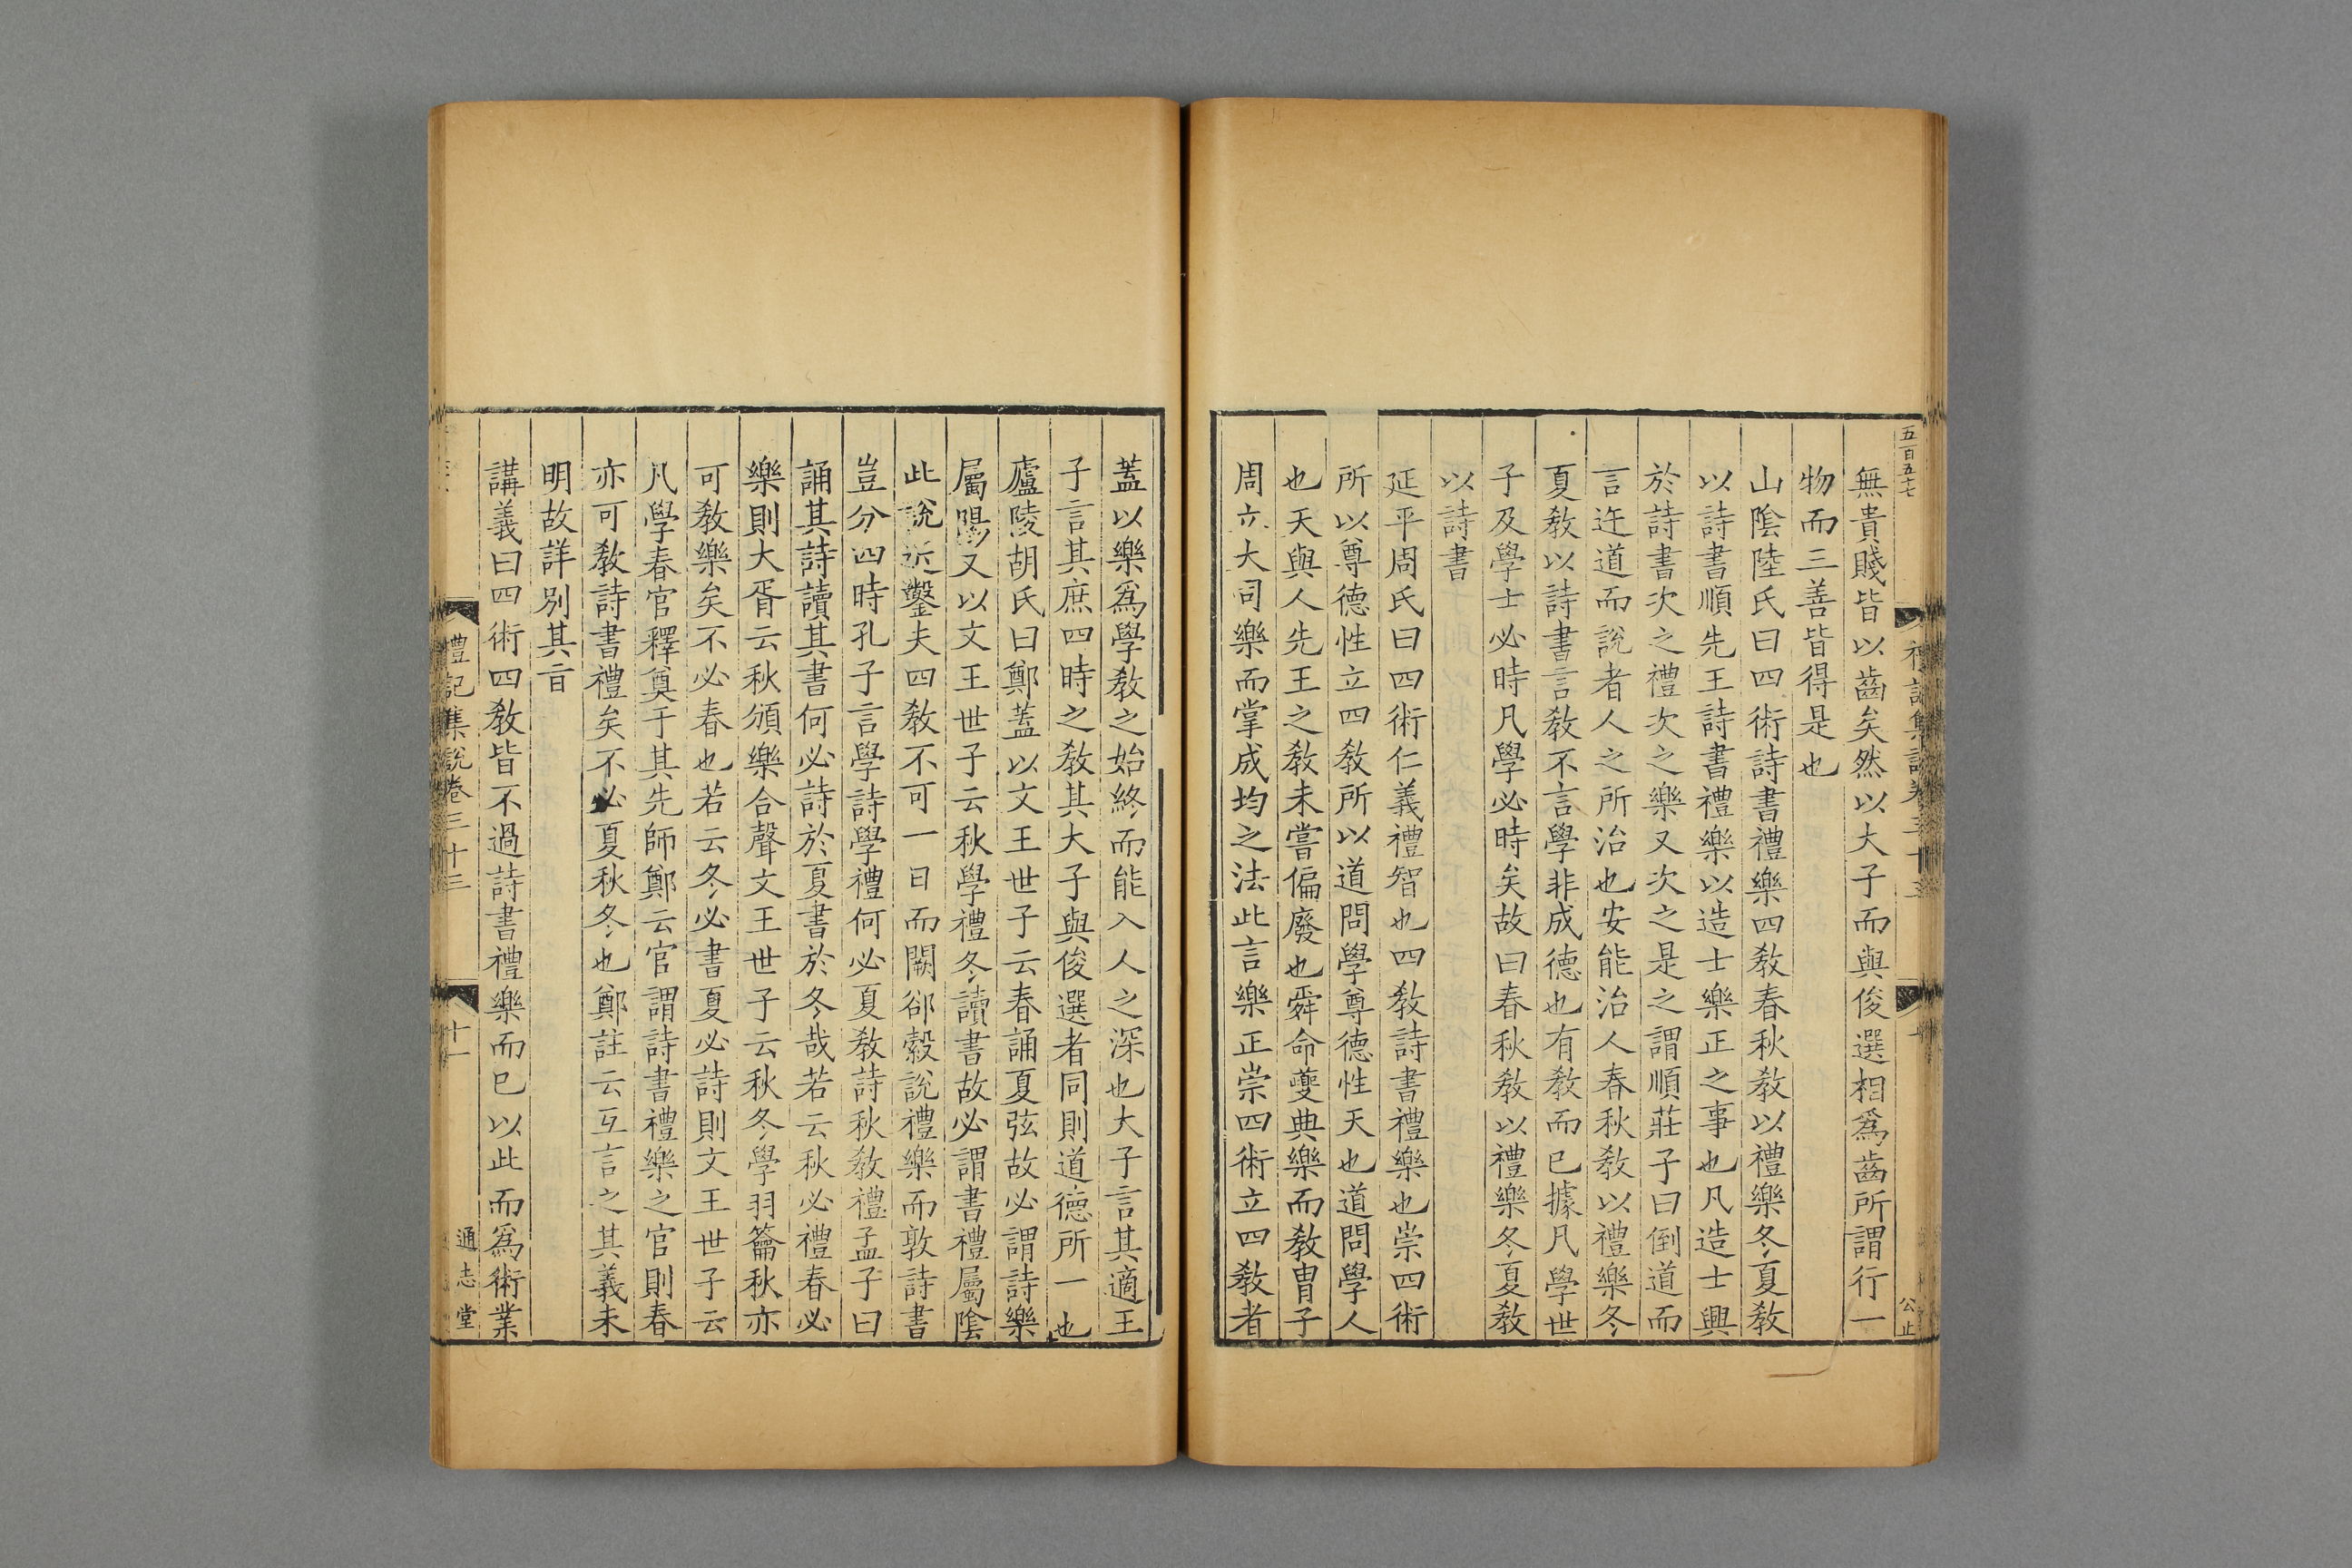 五百五十七
禮記集說卷三十三
十
公止
無貴賤皆以齒矣然以大子而與俊選相爲齒所謂行一
物而三善皆得是也
山陰陸氏曰四術詩書禮樂四敎春秋敎以禮樂冬夏敎
以詩書順先王詩書禮樂以造士樂正之事也凡造士興
於詩書次之禮次之樂又次之是之謂順莊子曰倒道而
言迕道而說者人之所治也安能治人春秋敎以禮樂冬
夏敎以詩書言敎不言學非成德也有敎而已據凡學世
子及學士必時凡學必時矣故曰春秋敎以禮樂冬夏敎
以詩書
延平周氏曰四術仁義禮智也四敎詩書禮樂也崇四術
所以尊德性立四敎所以道問學尊德性天也道問學人
也天與人先王之敎未嘗偏廢也舜命夔典樂而敎胄子
周亦大司樂而掌成均之法此言樂正崇四術立四敎者
蓋以樂爲學敎之始終而能入人之深也大子言其適王
子言其庶四時之敎其大子與俊選者同則道德所一也
廬陵胡氏曰鄭蓋以文王世子云春誦夏弦故必謂詩樂
屬陽又以文王世子云秋學禮冬讀書故必謂書禮屬陰
此說近鑿夫四敎不可一日而闕郤縠說禮樂而敦詩書
豈分四時孔子言學詩學禮何必夏敎詩秋敎禮孟子曰
誦其詩讀其書何必詩於夏書於冬哉若云秋必禮春必
樂則大胥云秋頒樂合聲文王世子云秋冬學羽籥秋亦
可敎樂矣不必春也若云冬必書夏必詩則文王世子云
凡學春官釋奠于其先師鄭云官謂詩書禮樂之官則春
亦可敎詩書禮矣不必夏秋冬也鄭註云互言之其義未
明故詳別其旨
講義曰四術四敎皆不過詩書禮樂而已以此而爲術業
禮記集說卷三十三
十一
通志堂